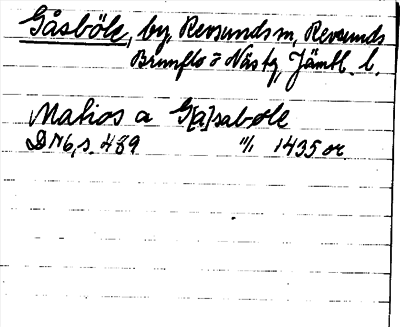 Gåsböle, by, Revsunds sn, Revsunds
Brunflo o Näs tg, Jämtl. l.
Matios a G[a]sabole
DN 6, s. 489 11/1 1435 or.